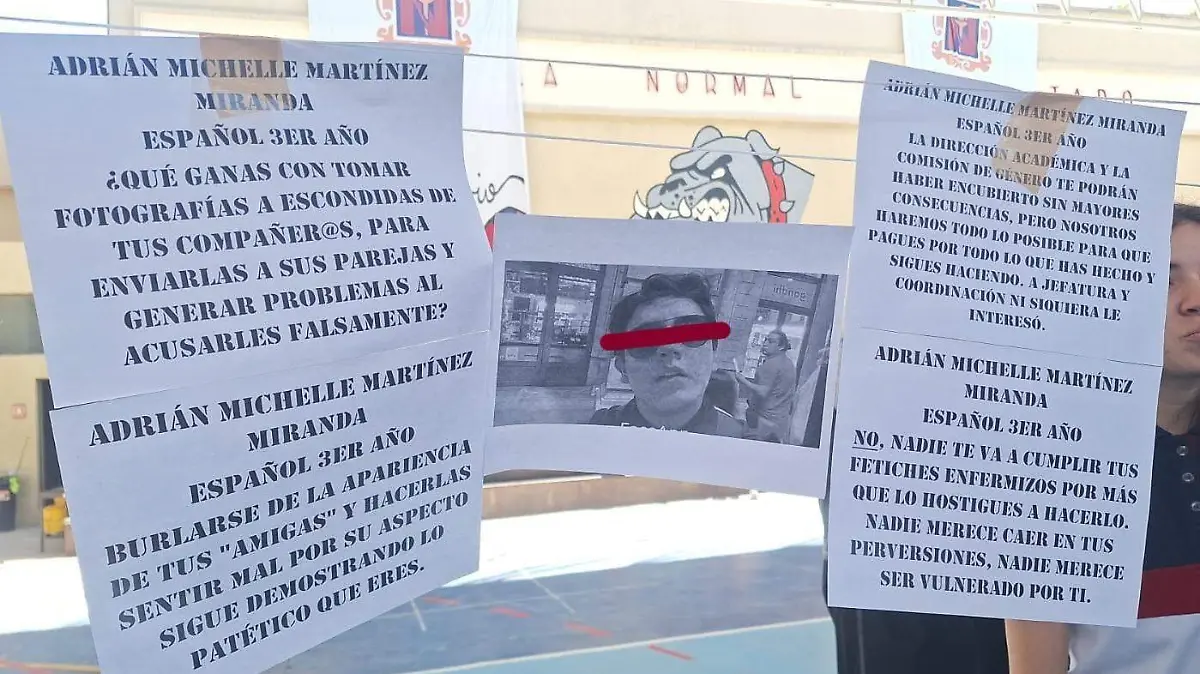 ADRIÁN MICHELLE MARTÍNEZ
MIRANDA
ESPAÑOL 3ER AÑO
¿QUÉ GANAS CON TOMAR
FOTOGRAFÍAS A ESCONDIDAS DE
TUS COMPAÑER@S, PARA
ENVIARLAS A SUS PAREJAS Y
GENERAR PROBLEMAS AL
ACUSARLES FALSAMENTE?
ADRIÁN MICHELLE MARTÍNEZ
MIRANDA
ESPAÑOL 3ER AÑO
BURLARSE DE LA APARIENCIA
DE TUS "AMIGAS" Y HACERLAS
SENTIR MAL POR SU ASPECTO
SIGUE DEMOSTRANDO LO
PATÉTICO QUE ERES.
NORMAL
ADRIÁN MICHELLE MARTÍNEZ MIRANDA
ESPAÑOL 3ER AÑO
LA DIRECCIÓN ACADÉMICA Y LA
COMISIÓN DE GÉNERO TE PODRÁN
HABER ENCUBIERTO SIN MAYORES
CONSECUENCIAS, PERO NOSOTROS
HAREMOS TODO LO POSIBLE PARA QUE
PAGUES POR TODO LO QUE HAS HECHO Y
SIGUES HACIENDO. A JEFATURA Y
COORDINACIÓN NI SIQUIERA LE
INTERESÓ.
ADRIÁN MICHELLE MARTÍNEZ
MIRANDA
ESPAÑOL 3ER AÑO
NO, NADIE TE VA A CUMPLIR TUS
FETICHES ENFERMIZOS POR MÁS
QUE LO HOSTIGUES A HACERLO.
NADIE MERECE CAER EN TUS
PERVERSIONES, NADIE MERECE
SER VULNERADO POR TI.